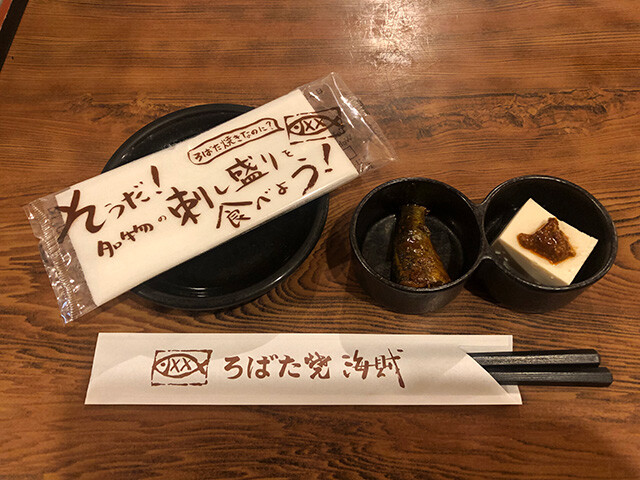 ろばた焼きなのに？
そうだ！
名物の刺し盛りを
食べよう！
ろばた焼 海賊